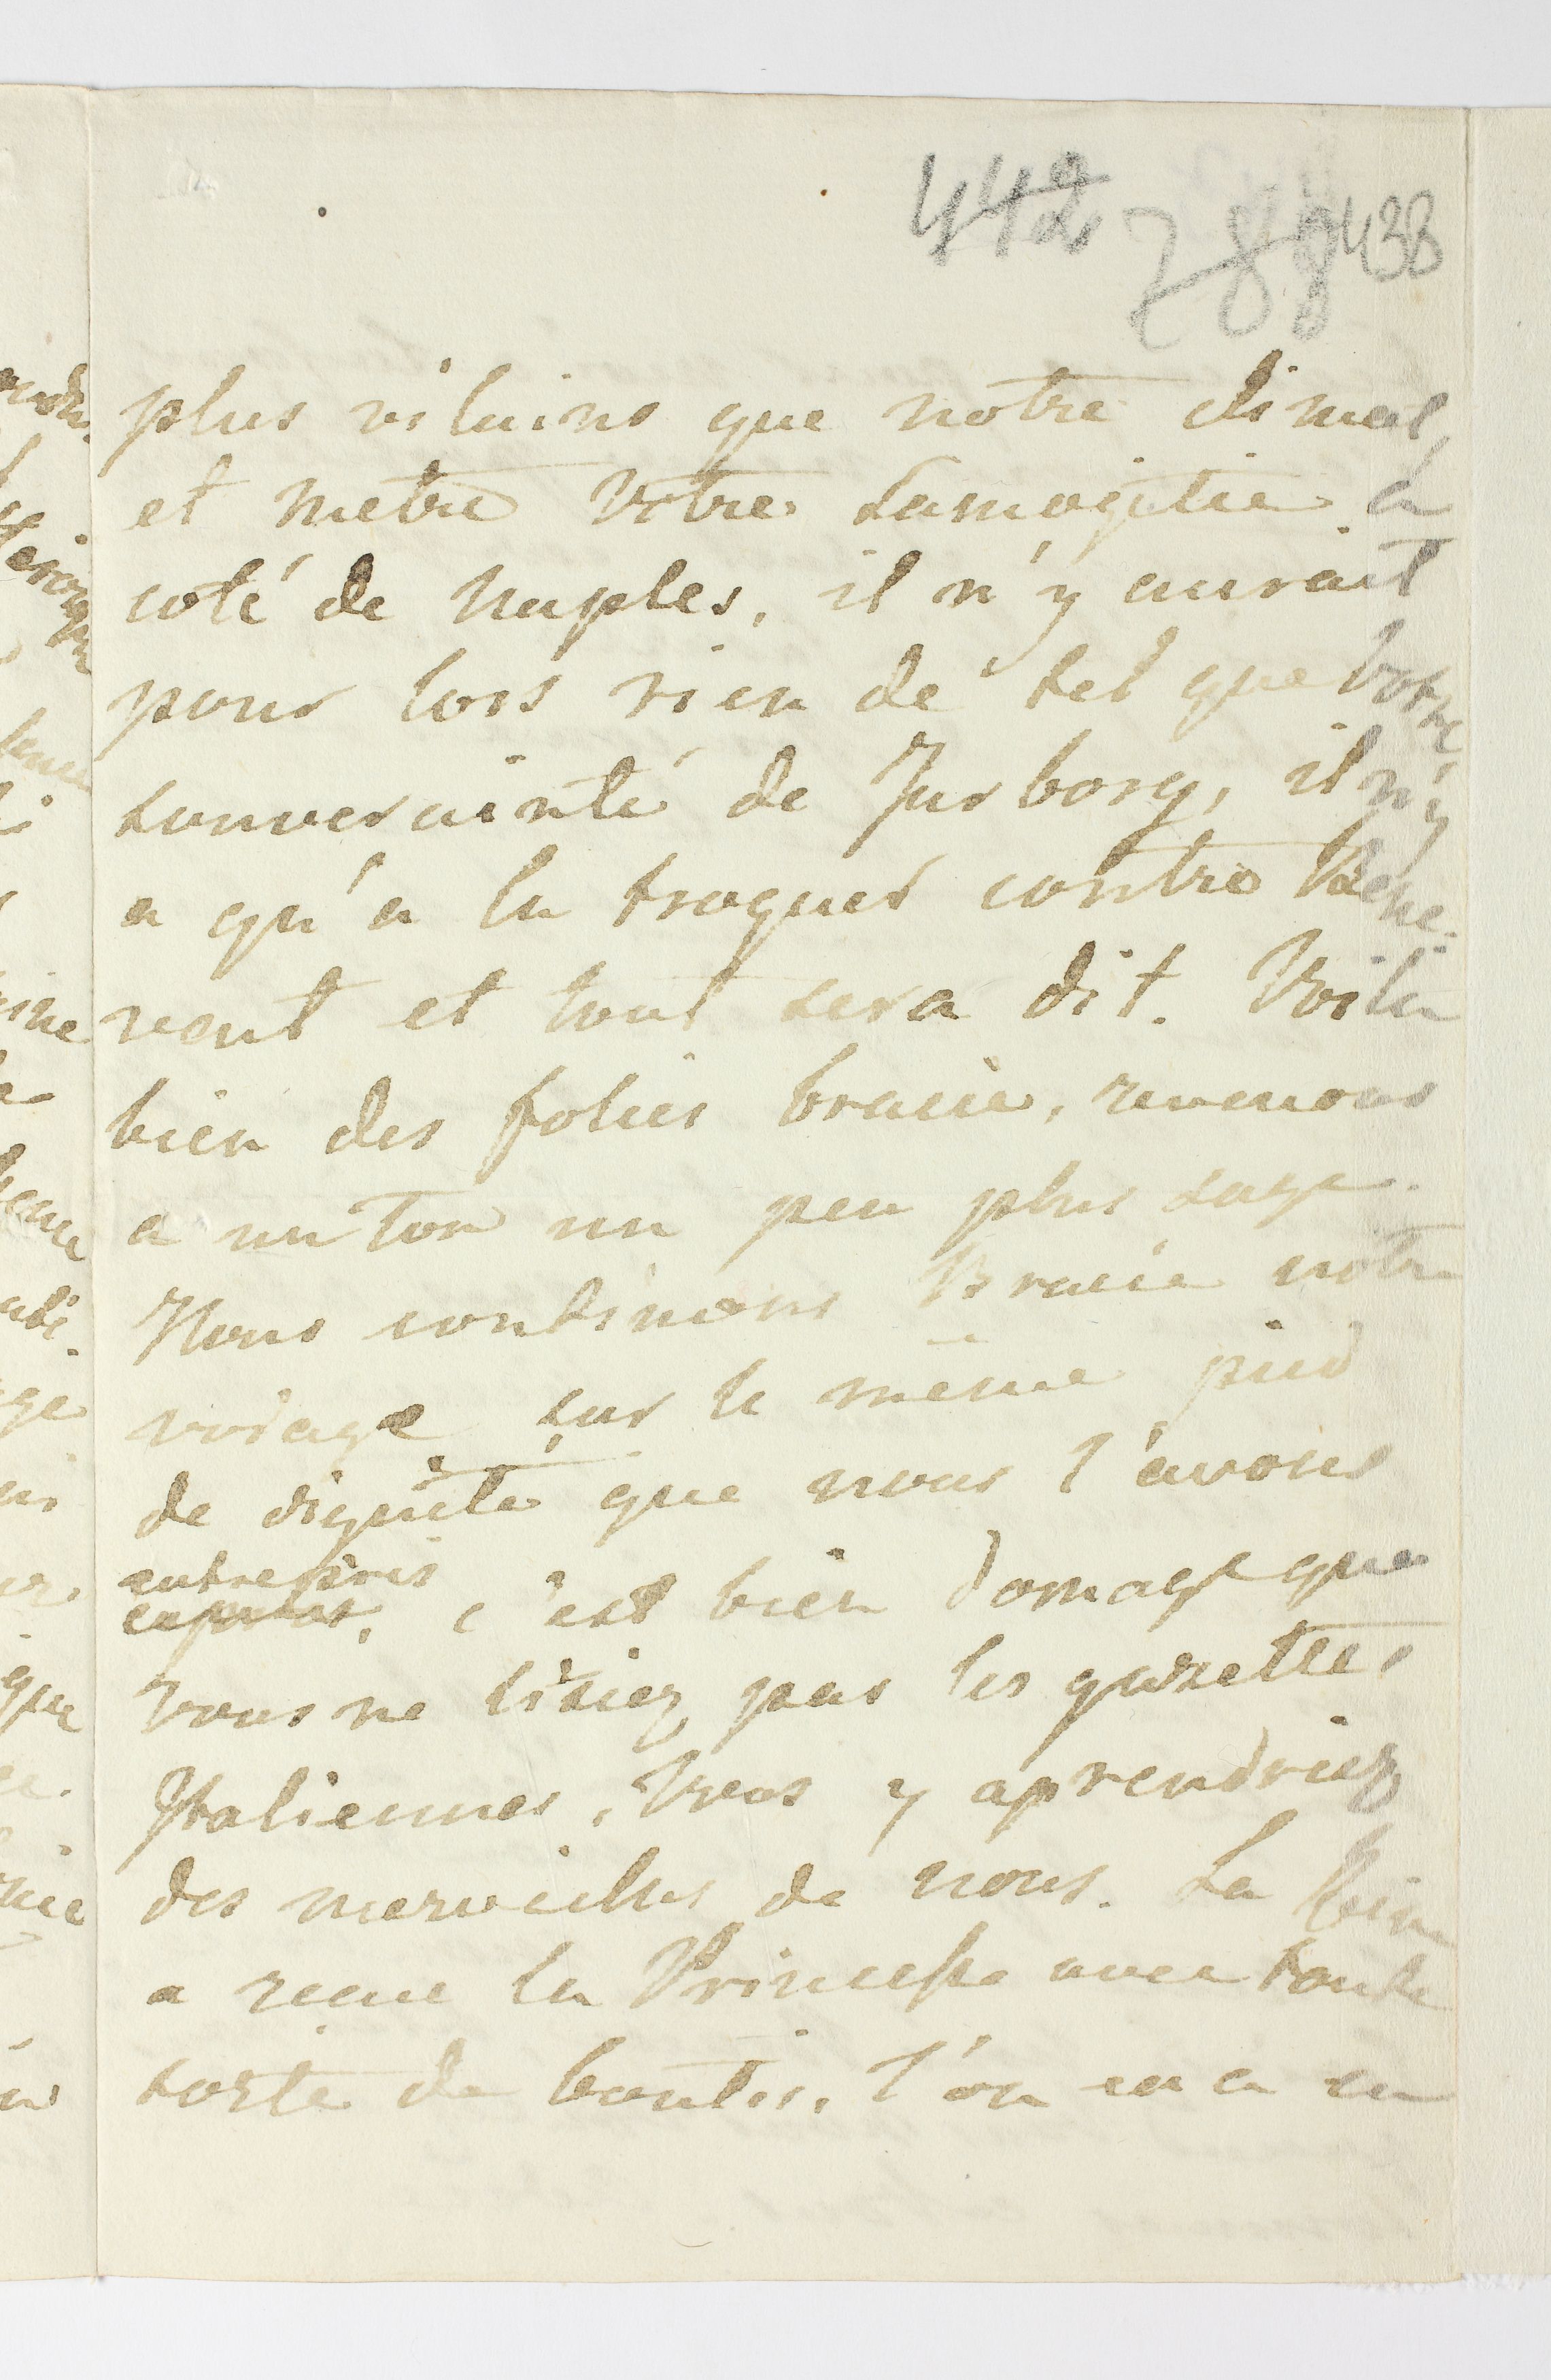 442 288 438
plus vilains que notre climat,
et metre Votre Samogitie a
coté de Naples, il n'y aurait
pour lors rien de tel que Votre
souverainté de Jurborg, il n'y
a qu'a la troquer contre Bene-
vent et tout sera dit. Voila
bien des folies bracie, revenons
a un ton un peu plus sage.
Nous continuons Bracie notre
voiage sur le même pied
de dignité que nous l'avons
entrepris c'est bien domage que
vous ne lisiez pas les gazettes
Italiennes, Vous y aprendriez
des merveilles de nous. La Reine
a recue la Princesse avec toute
sorte de bontés, l'on en a eu